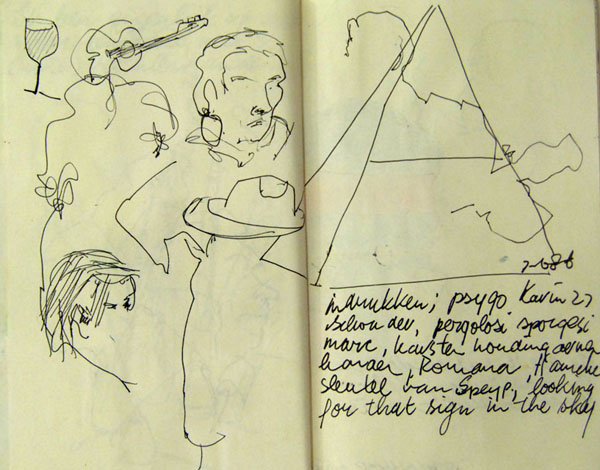 indrukken; psygo Karin 27
schouder, pergolosi spogesi
marc, karsten honding
haren, Romana,
sleutel van Speyp; looking
for that sign in the sky